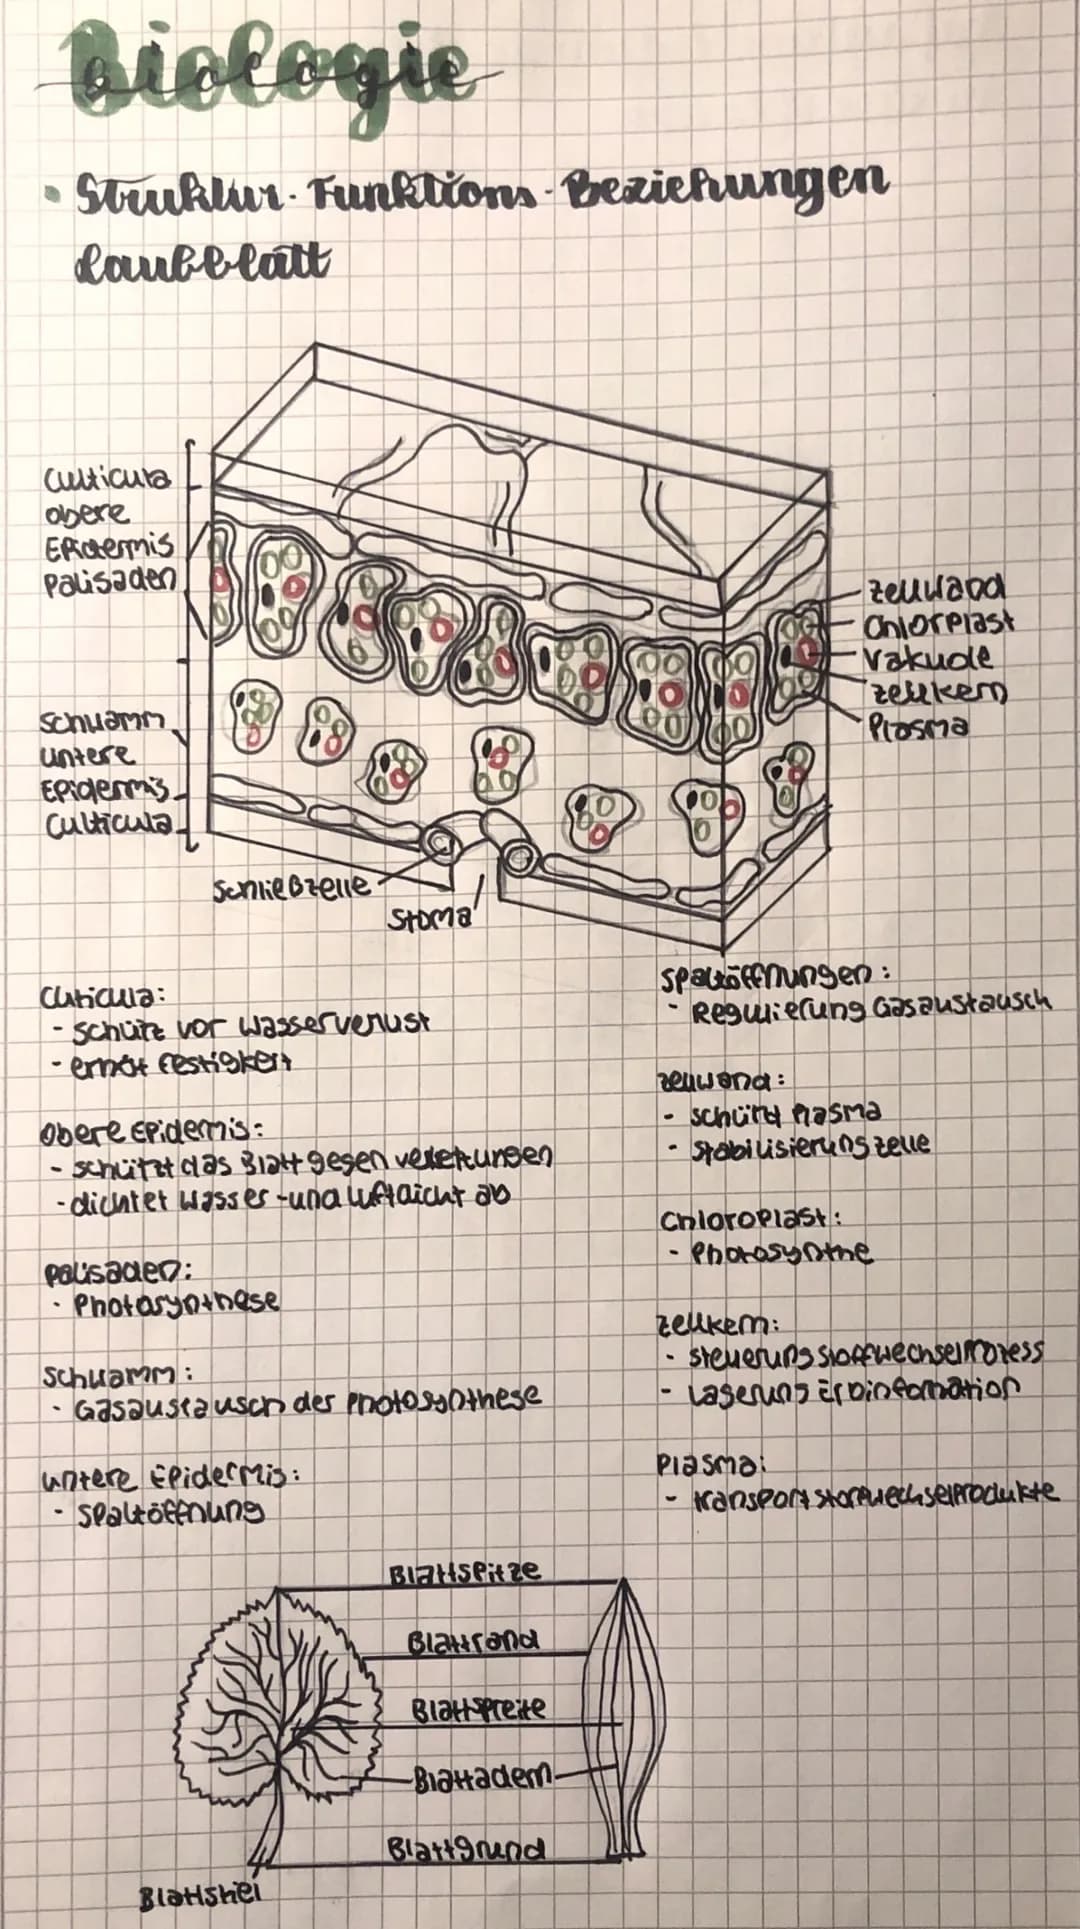 Biologie
• Struktur-Funktions-Beziehungen
Laubblatt
Culticula
obere
Epidermis
Palisaden
Schwamm
untere
Epidermis
Culticula
Zellwand
Chlorplast
Vakuole
Zellkern
Plasma
Schließzelle
Stoma
Cuticula:
- schütz vor Wasserverlust
- erhöt Festigkeit
obere Epidemis:
- schützt das Blatt gegen verletzungen
- dichtet wasser-und luftdicht ab
Palisaden:
- Photosynthese
Schwamm:
- Gasaustausch der Photosynthese
untere Epidermis:
- Spaltöffnung
Spaltöffnungen:
- Regulierung Gasaustausch
Zellwand:
- schützt Plasma
- Stabilisierung Zelle
Chloroplast:
- Photosynthe
Zellkern:
- Steuerung Stoffwechselprozess
- Lagerung Erbinfomation
Plasma:
- transport stoffwechselprodukte
Blattspitze
Blattrand
Blattspreite
Blattadern
Blattgrund
Blattstiel